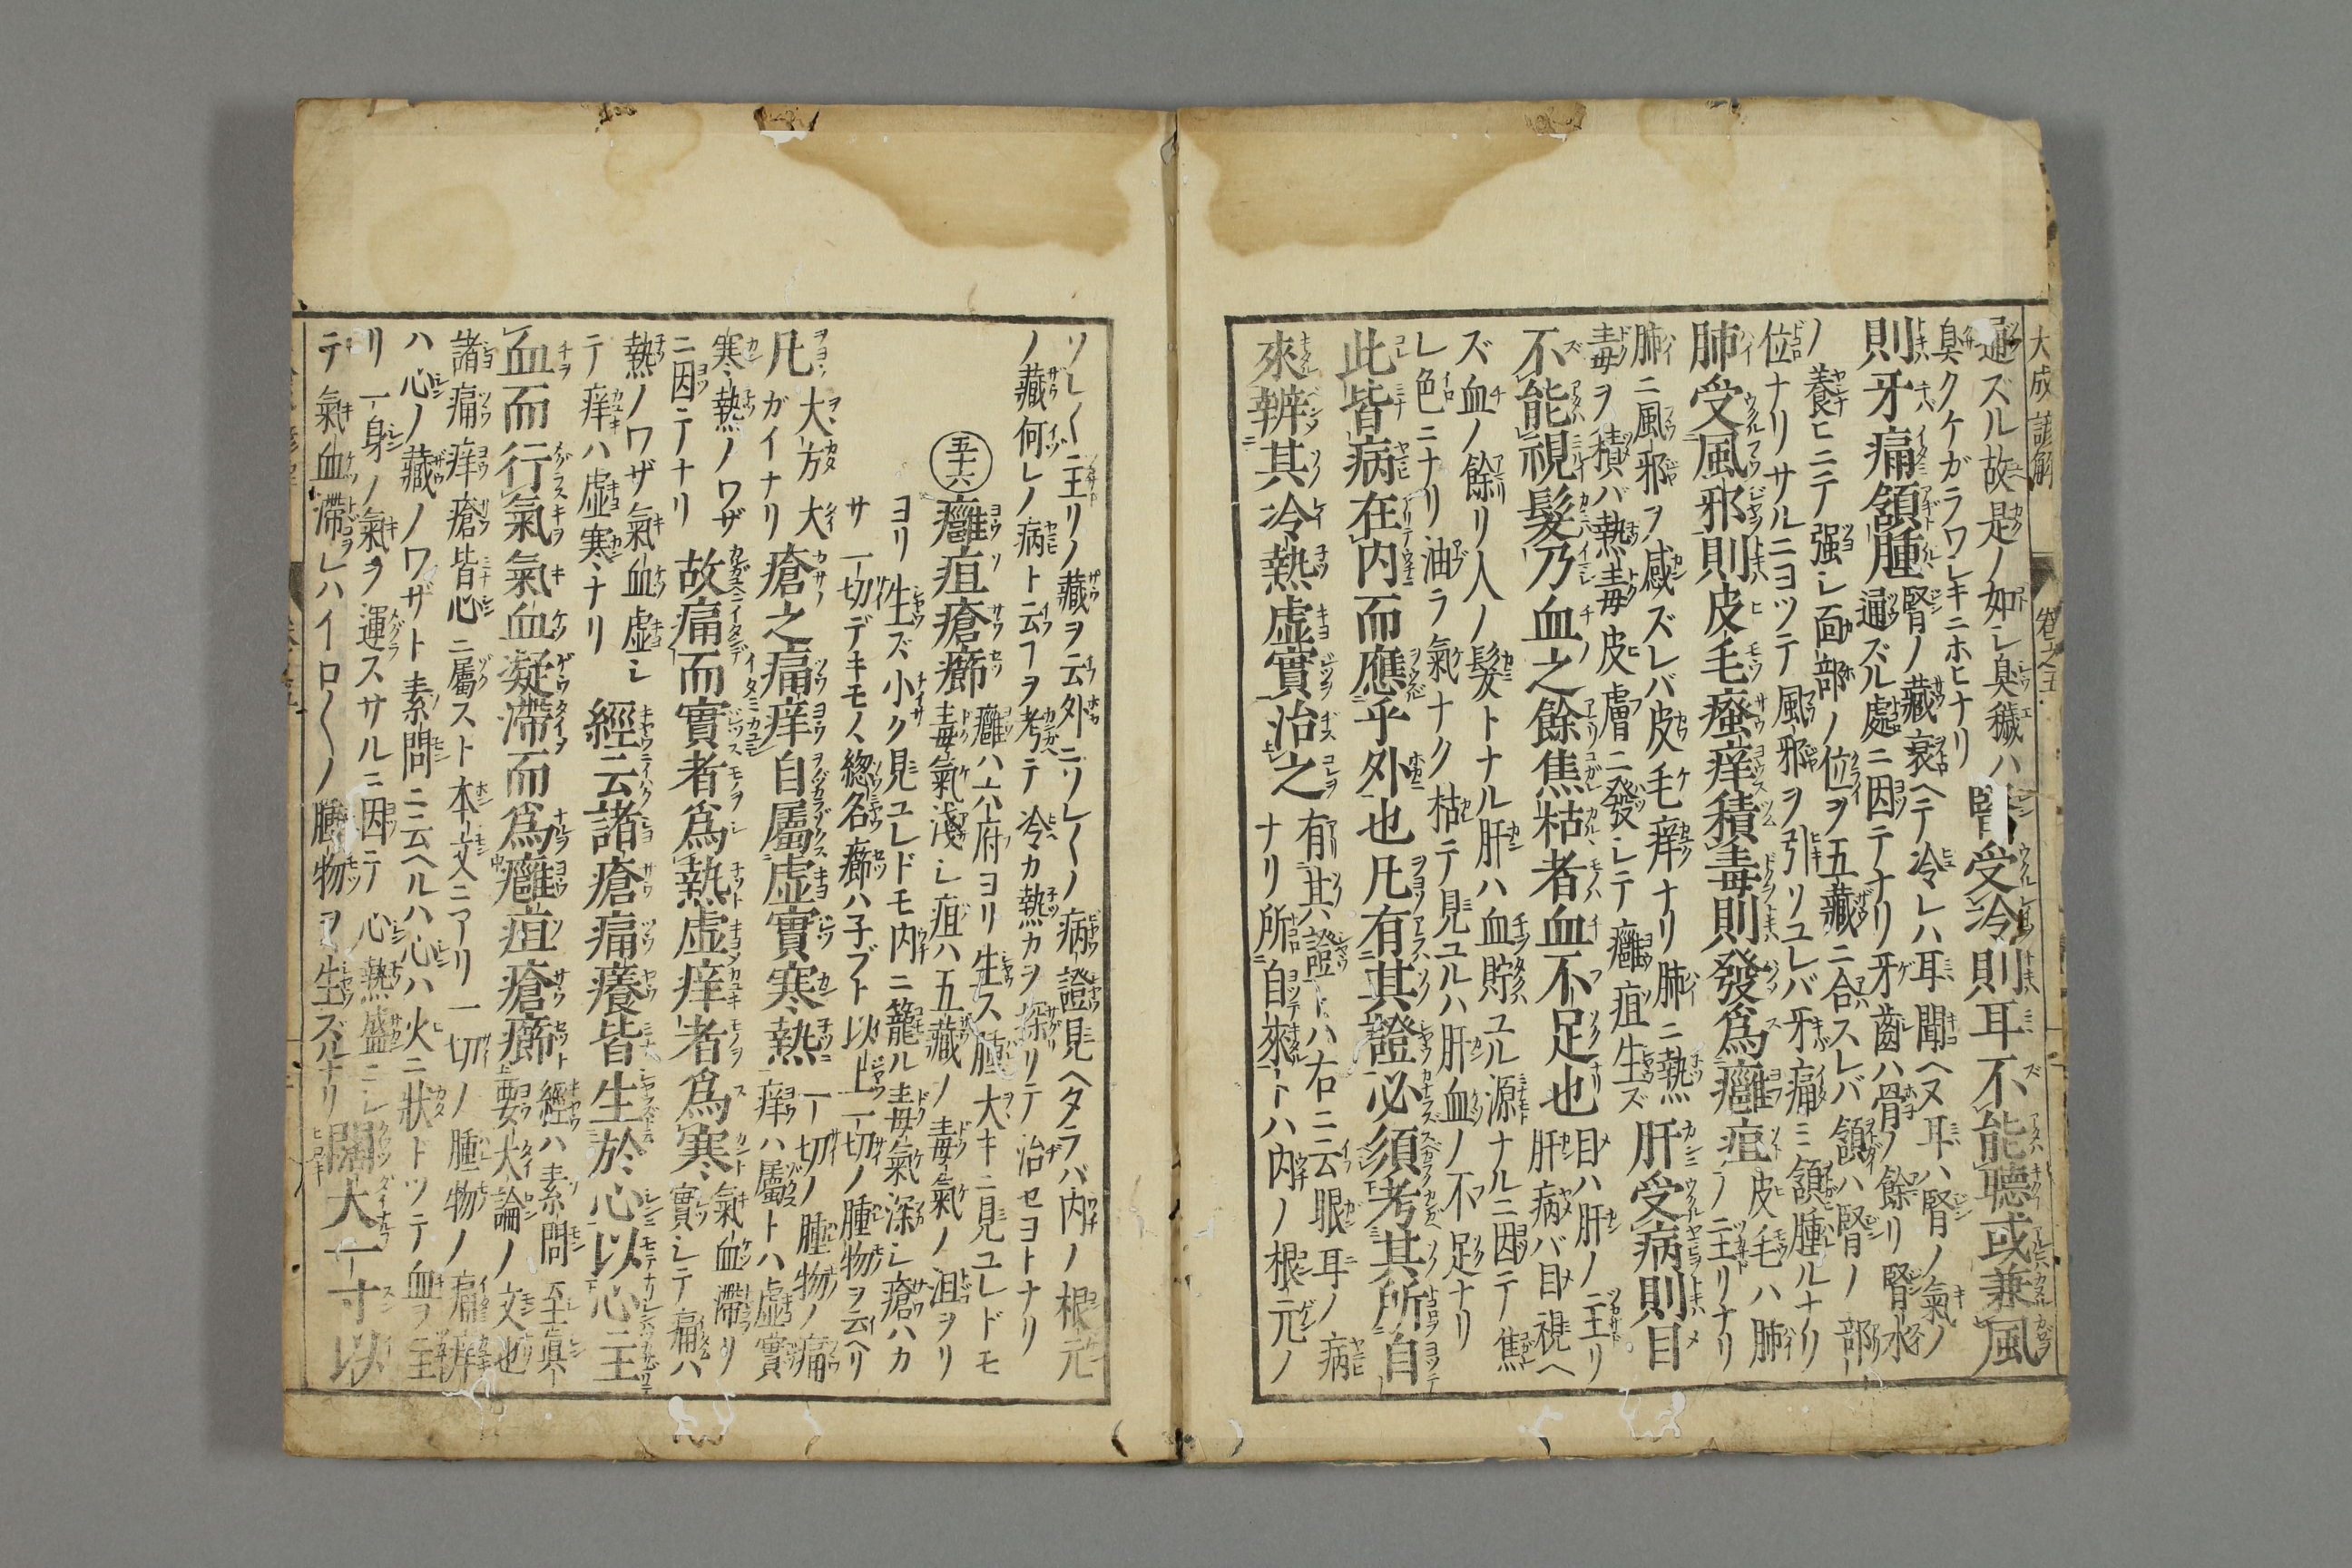 大成諺解　卷之五
通ズル故ニ是ノ如シ臭穢ハ
臭クケガラワシキニホヒナリ
腎受冷則耳不能聽或兼風
則牙痛頷腫
腎ノ藏衰ヘテ冷レハ耳聞ヘヌ耳ハ腎ノ氣ノ
通ズル處ニ因テナリ牙齒ハ骨ノ餘リ腎水
ノ養ヒニテ强シ面部ノ位ヲ五藏ニ合スレバ頷ハ腎ノ部
位ナリサルニヨツテ風邪ヲ引リユレバ牙痛ミ頷腫ルナリ
肺受風邪則皮毛瘙痒積毒則發爲癰疽
皮毛ハ肺
ノ主リナリ
肺ニ風邪ヲ感ズレバ皮毛痒ナリ肺ニ熱
毒ヲ積バ熱毒皮膚ニ發シテ癰疽生ズ
肝受病則目
不能視髮乃血之餘焦枯者血不足也
目ハ肝ノ主リ
肝病バ目視ヘ
ズ血ノ餘リ人ノ髮トナル肝ハ血貯ユル源ナルニ因テ焦
レ色ニナリ油ラ氣ナク枯テ見ユルハ肝血ノ不足ナリ
此皆病在内而應乎外也凡有其證必須考其所自
來辨其冷熱虛實治之
有其證トハ右ニ云眼耳ノ病
ナリ所自來トハ内ノ根元ノ
ソレ〱主リノ藏ヲ云外ニソレ〱ノ病證見ヘタラバ内ノ根元
ノ藏何レノ病ト云フヲ考テ冷カ熱カヲ探リテ治セヨトナリ
五十六　癰疽瘡癤
癰ハ六府ヨリ生ス腫大キニ見ユレドモ
毒氣淺シ疽ハ五藏ノ毒氣ノ沮ヲリ
ヨリ生ズ小ク見ユレドモ内ニ籠ル毒氣深シ瘡ハカ
サ一切デキモノ總名癤ハ子ブト以上一切ノ腫物ヲ云ヘリ
凡大方大
ガイナリ
瘡之痛痒自屬虛實寒熱
一切ノ腫物ノ痛
痒ハ屬トハ虛實
寒熱ノワザ
ニ因テナリ
故痛而實者爲熱虛痒者爲寒
氣血滯リ
實シテ痛ハ
熱ノワザ氣血虛シ
テ痒ハ虛寒ナリ
經云諸瘡痛癢皆生於心以心主
血而行氣氣血凝滯而爲癰疽瘡癤
經ハ素問至眞
要大論ノ文也
諸痛痒瘡皆心ニ屬スト本文ニアリ一切ノ腫物ノ痛痒
ハ心ノ藏ノワザト素問ニ云ヘルハ心ハ火ニ狀ドツテ血ヲ主
リ一身ノ氣ヲ運スサルニ因テ心熱盛ニシ
テ氣血滯レハイロ〱ノ腫物ヲ生ズルナリ
闊大一寸以